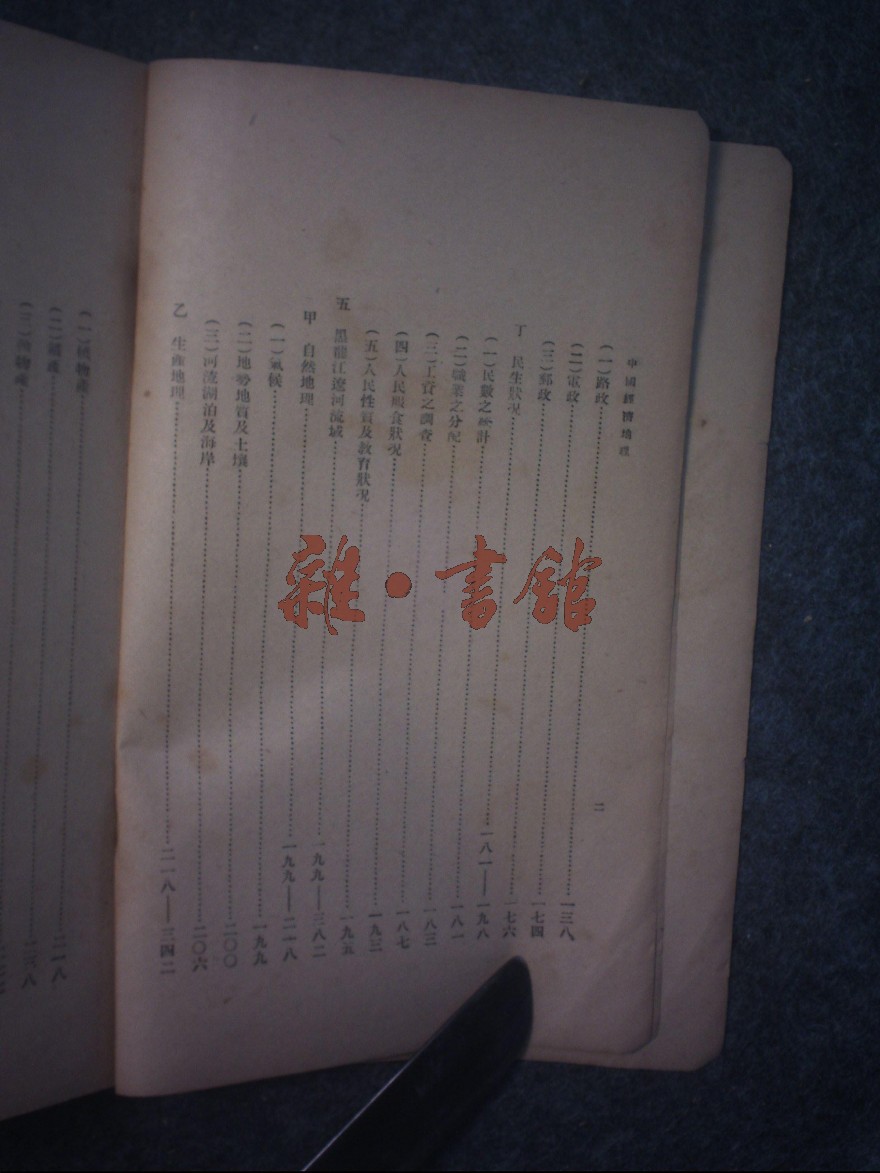 中國經濟地理
二
(一)路政……一三八
(二)電政……一七四
(三)郵政……一七六
丁　民生狀況……一八一——一九八
(一)民數之統計……一八一
(二)職業之分配……一八三
(三)工資之調查……一八七
(四)人民服食狀況……一九三
(五)人民性質及教育狀況……一九五
五　黑龍江遼河流域……一九九——三八二
甲　自然地理……一九九——二一八
(一)氣候……一九九
(二)地勢地質及土壤……二〇〇
(三)河流湖泊及海岸……二〇六
乙　生產地理……二一八——三四二
(一)植物產……二一八
雜·書館